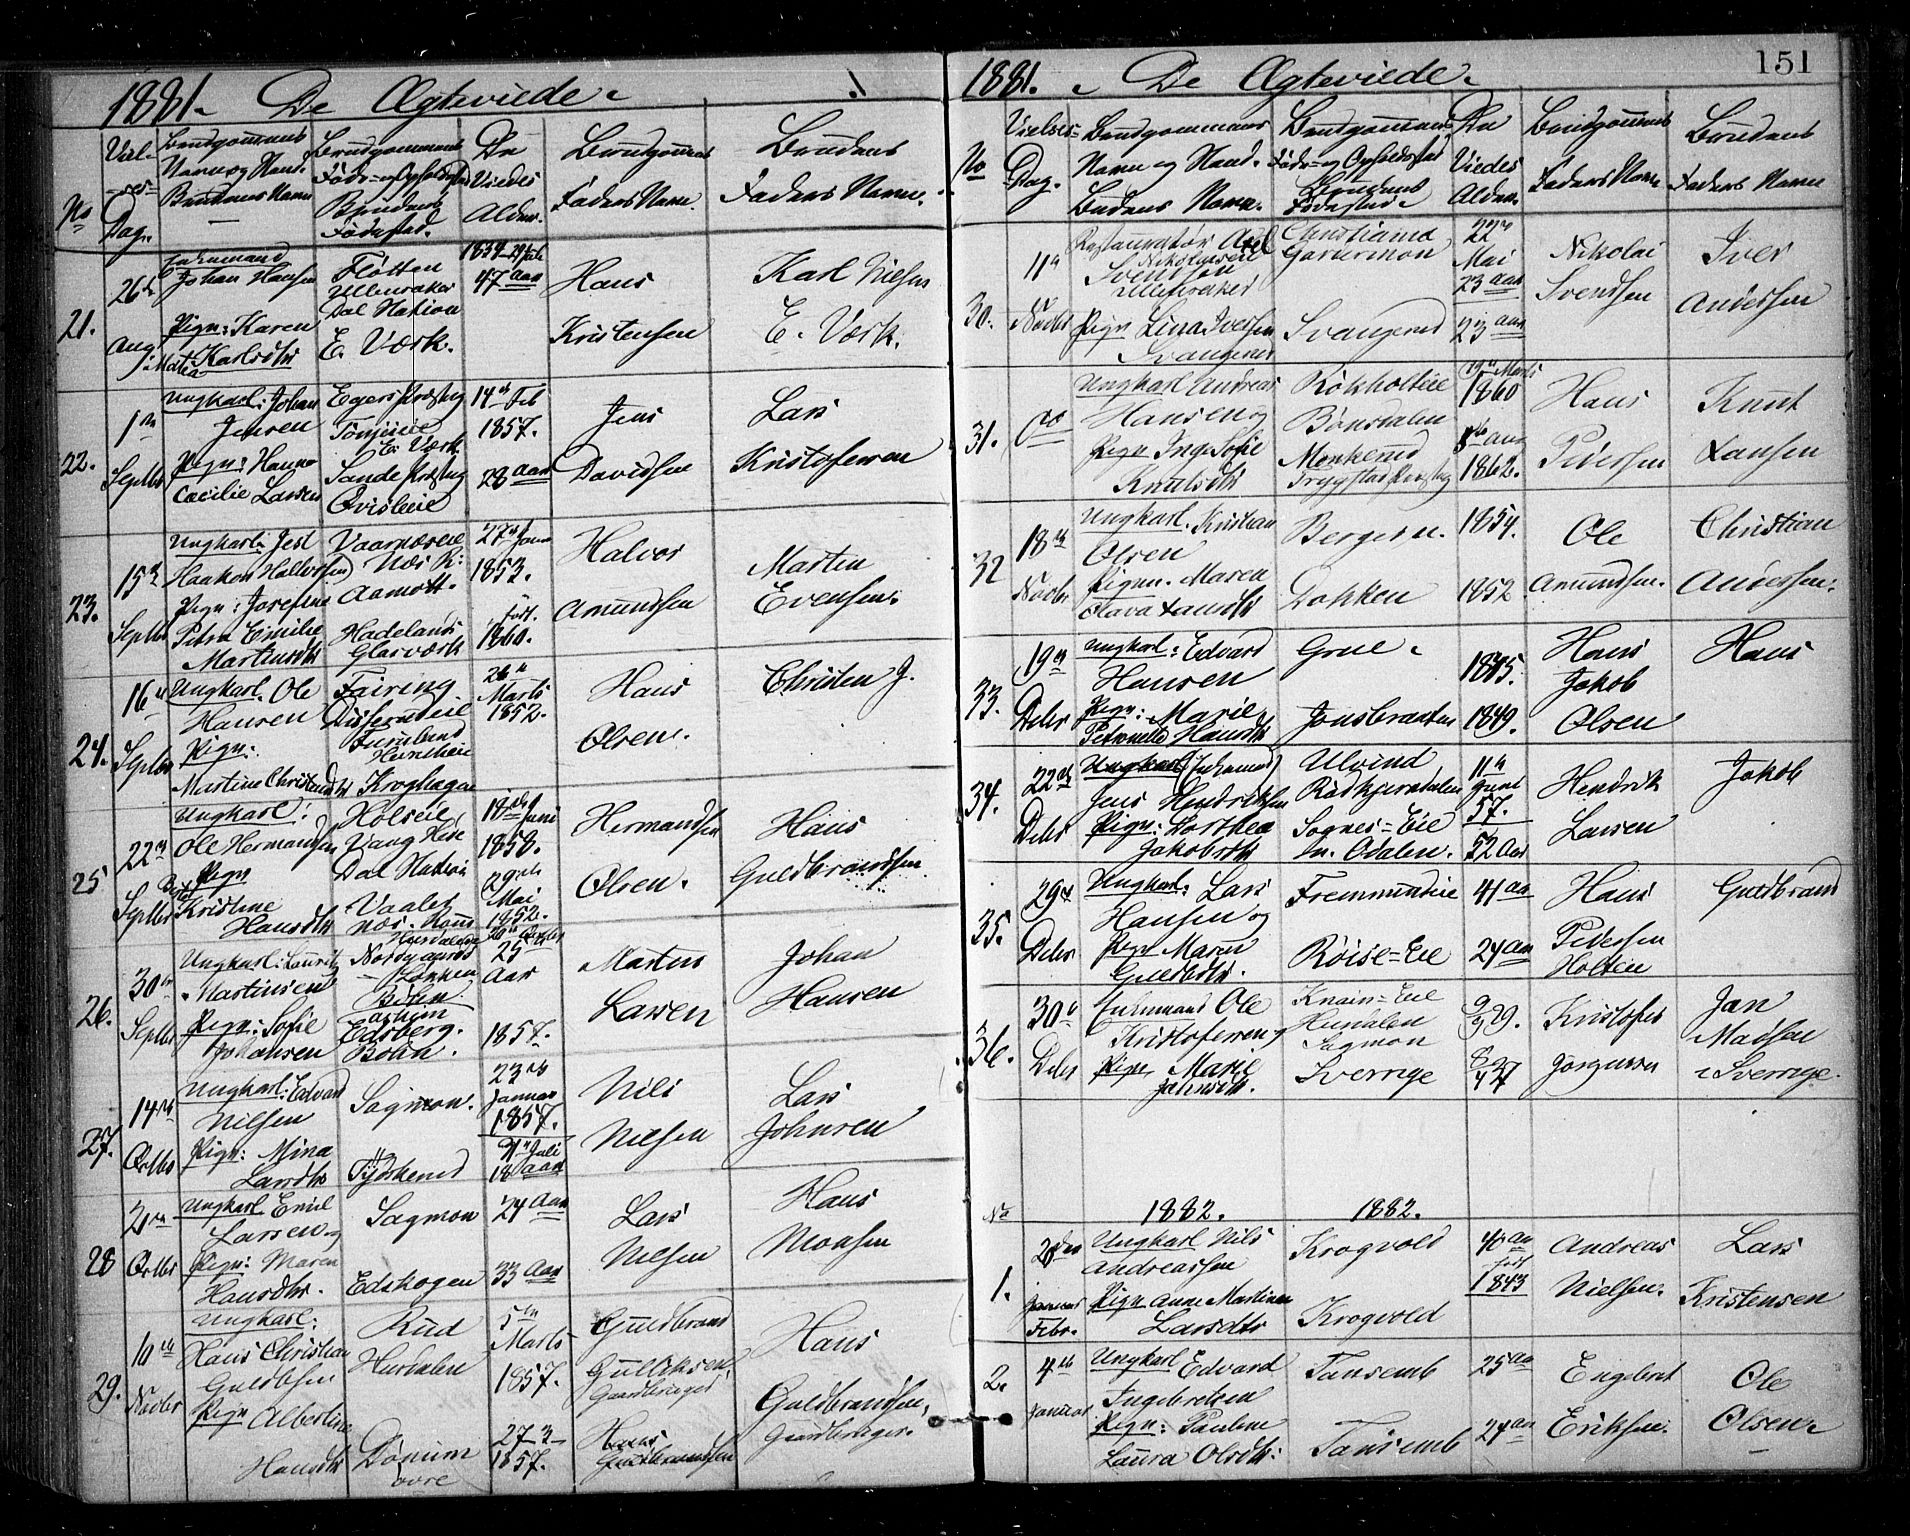 1881. De Ægteviede.
No
Viel-
ses-
Dag.
Brudgommens
Navn og Hand.
Brudens Navn
Brudgommens
Føde- og Opholdssted
Brudens
Fødested.
De
Viedes
Alder.
Brudgommens
Faders Navn.
Brudens
Faders Navn.
21.
26de
Aug
Enkemand
Johan Hansen
Pign: Karen
Karlsdtr
Fløtten
Ullensaker
Dal Station
E. Værk.
47 Aar
Hans
Kristensen
Karl Nielsen
E. Værk.
22.
1ste
Septbr
Ungkarl: Johan
Jensen
Pign: Hanna
Cæcilie Larsen
Egers Præstg
E. Værk
Sande Præstg
14de Feb
1857.
28 Aar
Jens
Davidsen
Lars
Kristofersen
23.
15de
Septbr
Ungkarl: Jest
Haakon Halvorsen
Pign: Josefine
Petra Emilie
Martinsdtr
Vaarnæseie
Næs R:
Aamott.
Hadelands
Glasværk
27de Jan
1853.
født.
1860.
Halvor
Amundsen
Martin
Evensen.
24.
16de
Septbr
Ungkarl. Ole
Hansen
Pign:
Martine Christensdtr
Tæiring
Disserudeie
Kroghagen
26de
Marts
1852.
Hans
Olsen.
Christen J.
25
22de
Septbr
Ungkarl:
Ole Hermansen
Pign
Kristine
Hansdtr
Holseie
Vang Hede
Dal Station
Vaaler
Næs. Rom
18de Juni
1858.
29de
Mai
1852.
Hermansen
Olsen.
Hans
Guldbrandsen
26.
30te
Septbr
Ungkarl: Lauritz
Martinsen
Pign: Sofie
Johansen
Edsberg.
Bohn.
25
Aar
1857.
Martin
Larsen
Johan
Hansen
27.
14de
Octbr
Ungkarl: Edvard
Nilsen
Pign: Mina
Larsdtr
Sagmon.
Tyskerud
23de
Januar
1857.
Juli
18 Aar
Nils
Nilsen
Lars
Johnsen
28
Octbr
Ungkarl Emil
Larsen og
Pign: Maren
Hansdtr.
Sagmon
Edskogen
24 Aar
33 Aar
Lars
Nilsen
Hans
Monsen
29.
10de
Novbr
Ungkarl:
Hans Christian
Guldbsen
Pign Albertine
Hansdtr
Rud
Hurdalen
Dønnum
øvre
5te
Marts
1857.
27-3-
1857.
Guldbrand
Gulliksen,
Gaardbruger
Hans
Guldbrandsen
Hans
Guldbrandsen,
Gaardbruger.
151
1881. De Ægteviede.
No
Vielses-
Dag.
Brudgommens
Navn og Stand.
Brudens Navn.
Brudgommens
Føde- og Opholdssted
Brudens
Fødested.
De
Viedes
Alder.
Brudgommens
Faders Navn
Brudens
Faders Navn
30.
11te
Novbr
Restauratør Axel
Nikolaisen
Svendsen
Ullensaker
Pign Lina Iversen
Svangerud
Christiania
Gardermon
Svangerud
22de
Mai
23 Aar
23 Aar
Nikolai
Svendsen
Iver
Andersen
31.
do
Ungkarl Andreas
Hansen og
Pign Inge Sofie
Knutsdtr
Røkholteie
Bønsdalen
Monkerud
Trygstad Præstg
19de Marts
1860
1862.
Hans
Pedersen
Knut
Larsen
32
18de
Novbr
Ungkarl. Kristian
Olsen
Pign. Maren
Olava
Bergersn.
Dokken
1854.
1852
Ole
Amundsen.
Christian
Andersen.
33.
19de
Debr
Ungkarl: Edvard
Hansen
Pign: Marie
Petronelle Hansdtr
Grue.
Jonsbraaten
1845.
1849.
Hans
Jakob
Olsen
Hans
34.
22de
Debr
Ungkarl (Enkemand)
Jens Hendriksen
Pign: Dorthea
Jakobsdtr
Ulvind
Rødkjernsdalen
Sognes-Eie
n. Odalen.
11te
Juni
57.
52 Aar
Hendrik
Larsen
Jakob
35.
29de
Debr
Ungkarl: Lars
Hansen og
Pign Maren
Guldbdtr.
Fremmundeie
Røise-Eie
41 Aar
24 Aar
Hans
Pedersen
Holten
Guldbrand
36.
30te
Debr
Enkemand Ole
Kristofersen og
Pign Marie
Jansdtr.
Knain-Eie
Hurdalen
Sagmon
Sverrige
9/9 29.
Kristofer
Jørgensen
Jan
Madsen
i Sverrige.
No
1882. 1882.
1.
Januar
Febr.
Ungkarl Nils
Andreassen
Pign Anne Martinea
Larsdtr
Krogvold
Krogvold
40 Aar
født
1843
Andreas
Nielsen.
Lars
Kristensen
2.
4de
Januar
Ungkarl Edvard
Ingebretsen
Pign: Pauline
Laura Olsdtr.
Tansemb
Tansemb
25 Aar
24 Aar
Engebret
Eriksen.
Ole
Olsen.